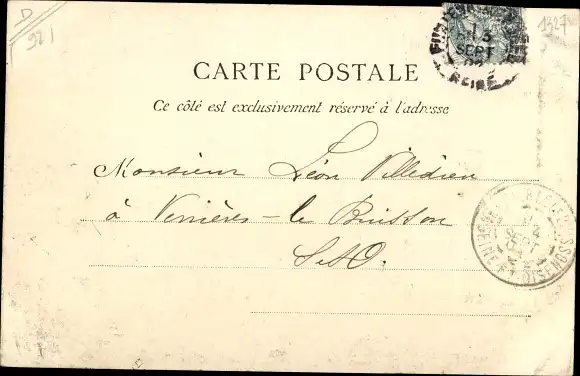 D
921
1327
13
SEPT
CARTE POSTALE
Ce côté est exclusivement réservé à l'adresse
Monsieur Léon Villedieu
à Verrières-le Buisson
S&O.
SEPT
SEINE ET OISE